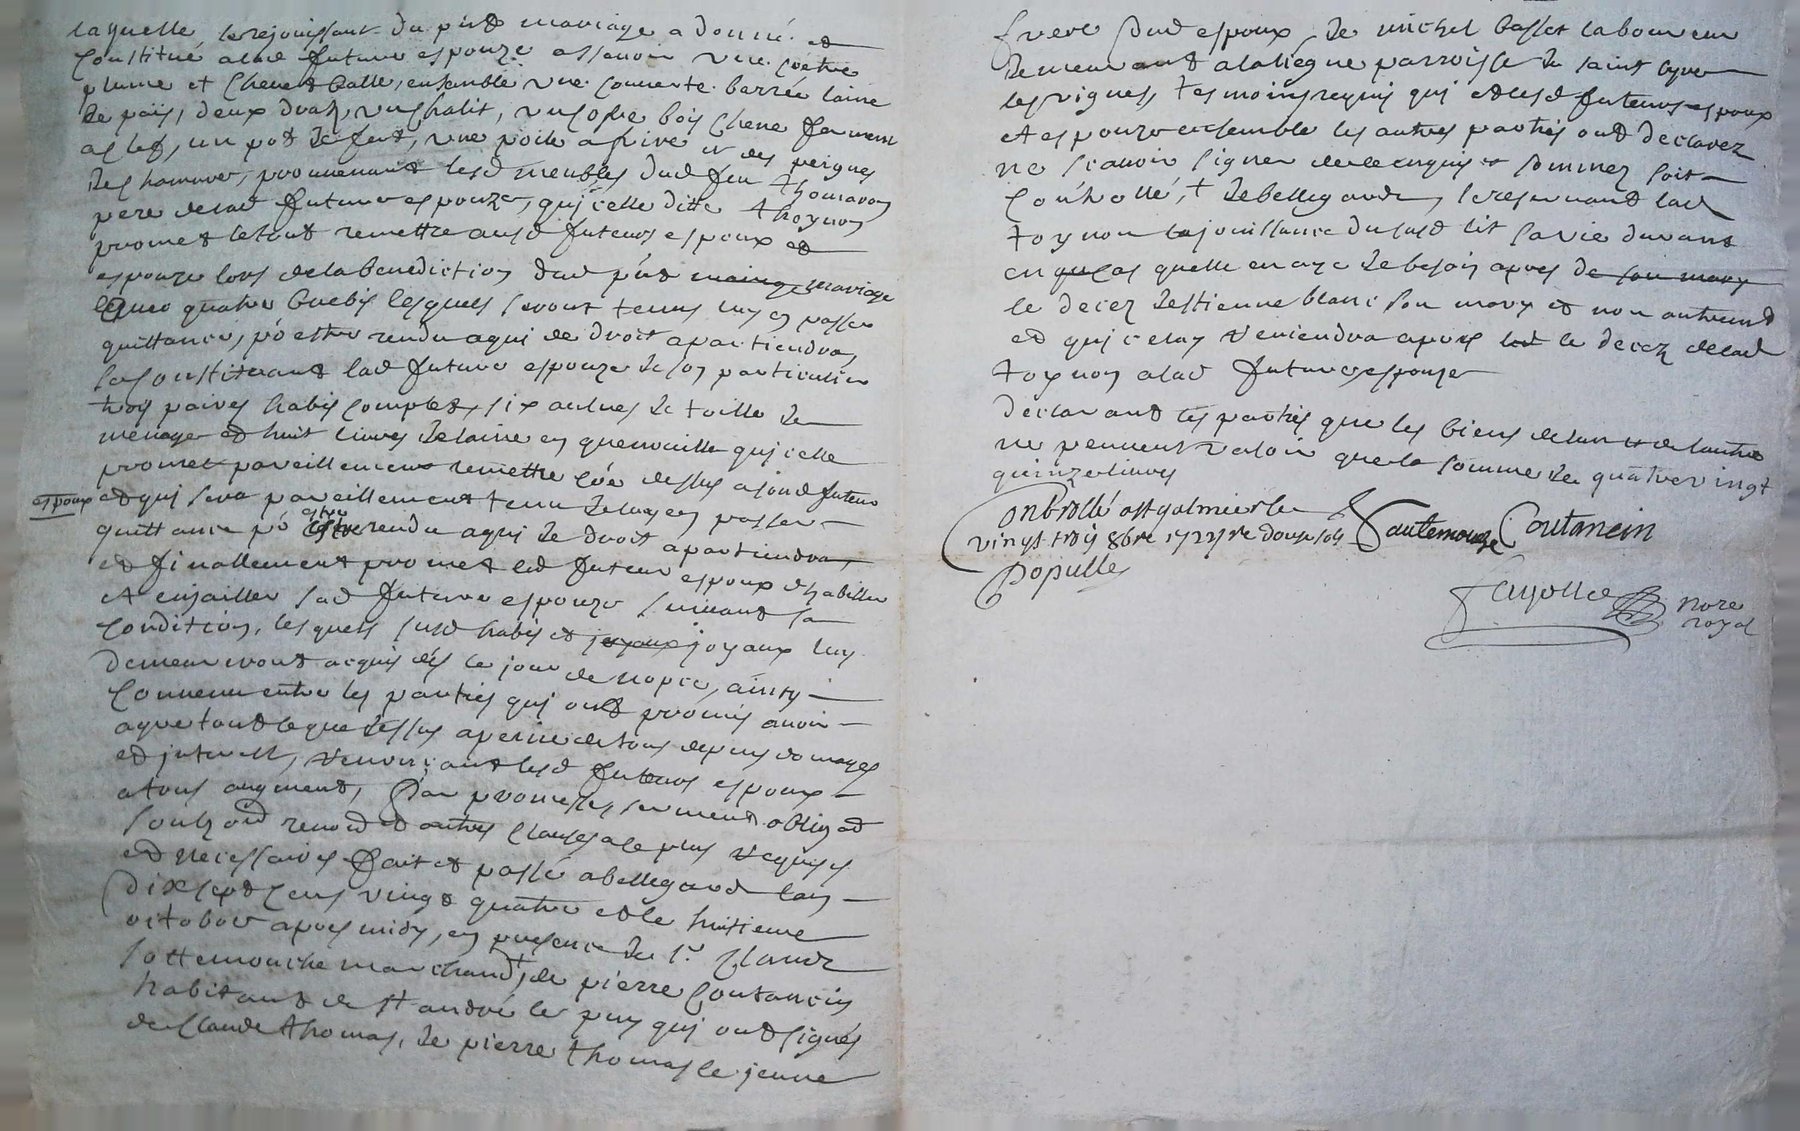 laquelle se rejouissant du pñt mariage a donné et
constitué a lad future espouze assavoir une coetre
plume et chevet balle, ensemble une couverte barrée laine
de païs, deux draps, un chalit, un cofre bois chene fermant
a clef, un pot de fert, une poile a frire et des peignes
de chanvre, provenant lesd meubles dud feu thomas
pere de lad future espouze, qu'icelle ditte thoynon
promet le tout remettre ausd futurs espoux et
espouze lors de la benediction dud pñt mariage mariage
avec quatre brebis lesquels seront tenus luy en passer
quittance, po estre rendu a qui de droit apartiendra,
se constituant lad future espouze de son particulier
trois paires habis complets, six aulnes de toille de
menage et huit livres de laine en quenouille qu'icelle
promet pareillement remettre cóe dessus a sond futeur
espoux et qui sera pareillement tenu de luy en passer
quittance po estre estre rendu a qui de droit apartiendra,
et finallement promet led futeur espoux d'habiller
et enjailler sad future espouze suivant sa
condition, lesquels susd habis et joyaux joyaux luy
demeureront acquis dés le jour de nopce, ainsy
convenu entre les parties qui ont promis avoir
a gré tout le que dessus a peine de tous depens domages
et interest, renonçant lesd futeurs espoux
a tous augment, Par promesses serment obligat
soubz on renon et autres clauses a ce plus requises
et necessaires fait et passé a bellegarde l'an
dix sept cens vingt quatre et le huitieme
octobre apres midy, en presence de sr. Claude
sottemouche marchand, de pierre Coutancin
habitant de st andré le puy qui ont signés
de Claude thomas, de pierre thomas le jeune
frere dud espoux, de michel basset laboureur
demeurant a la liegne parroisse de saint Cyre
les vignes, tesmoins requis qui et lesd futeurs espoux
et espouze ensemble les autres parties ont declarez
ne sçavoir signer de ce enquis et sommez soit
controllé, a de bellegarde, se reservant lad
toynon la jouissance du susd lit sa vie durant
en cas quelle en aye de besoin apres de son mary
le decez destienne blanc son mary et non autrement
et qu'iceluy reviendra apres led le decez de lad
toynon a lad future espouze
declarant les parties que les biens de lun et de lautre
ne peuvent valoir que la somme de quatre vingt
quinze livres
Controllé a st galmier le
vingt trois 8bre 1724 re douze sols
Sautemouche Coutancin
Populle
Fayolle nore
royal